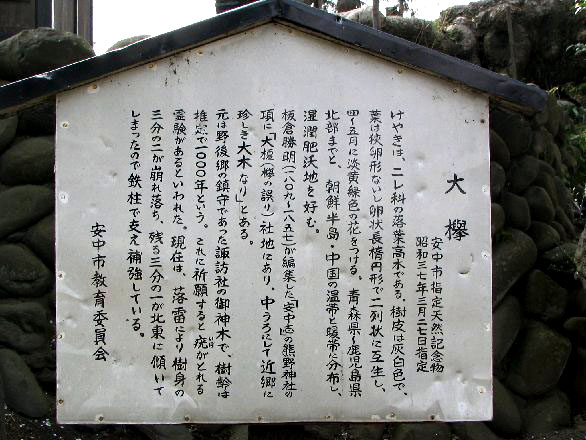 大欅
安中市指定天然記念物
昭和三七年三月二七日指定
けやきは、ニレ科の落葉高木である。樹皮は灰白色で、
葉は狭卵形ないし卵状長楕円形で二列状に互生し、
四～五月に淡黄緑色の花をつける。青森県～鹿児島県
北部までと、朝鮮半島・中国の温帯と暖帯に分布し、
湿潤肥沃地を好む。
板倉勝明(一八〇九～一八五七)が編集した「安中志」の熊野神社の
項に「大槻(欅の誤り)社地にあり、中うろにて近郷に
珍しき大木なり」とある。
元は野後郷の鎮守であった諏訪社の御神木で、樹齢は
推定一〇〇〇年という。これに祈願すると疣がとれる
いぼ
霊験があるといわれた。現在は、落雷により樹身の
三分の二が崩れ落ち、残る三分の一が北東に傾いて
しまったので鉄柱で支え補強している。
安中市教育委員会